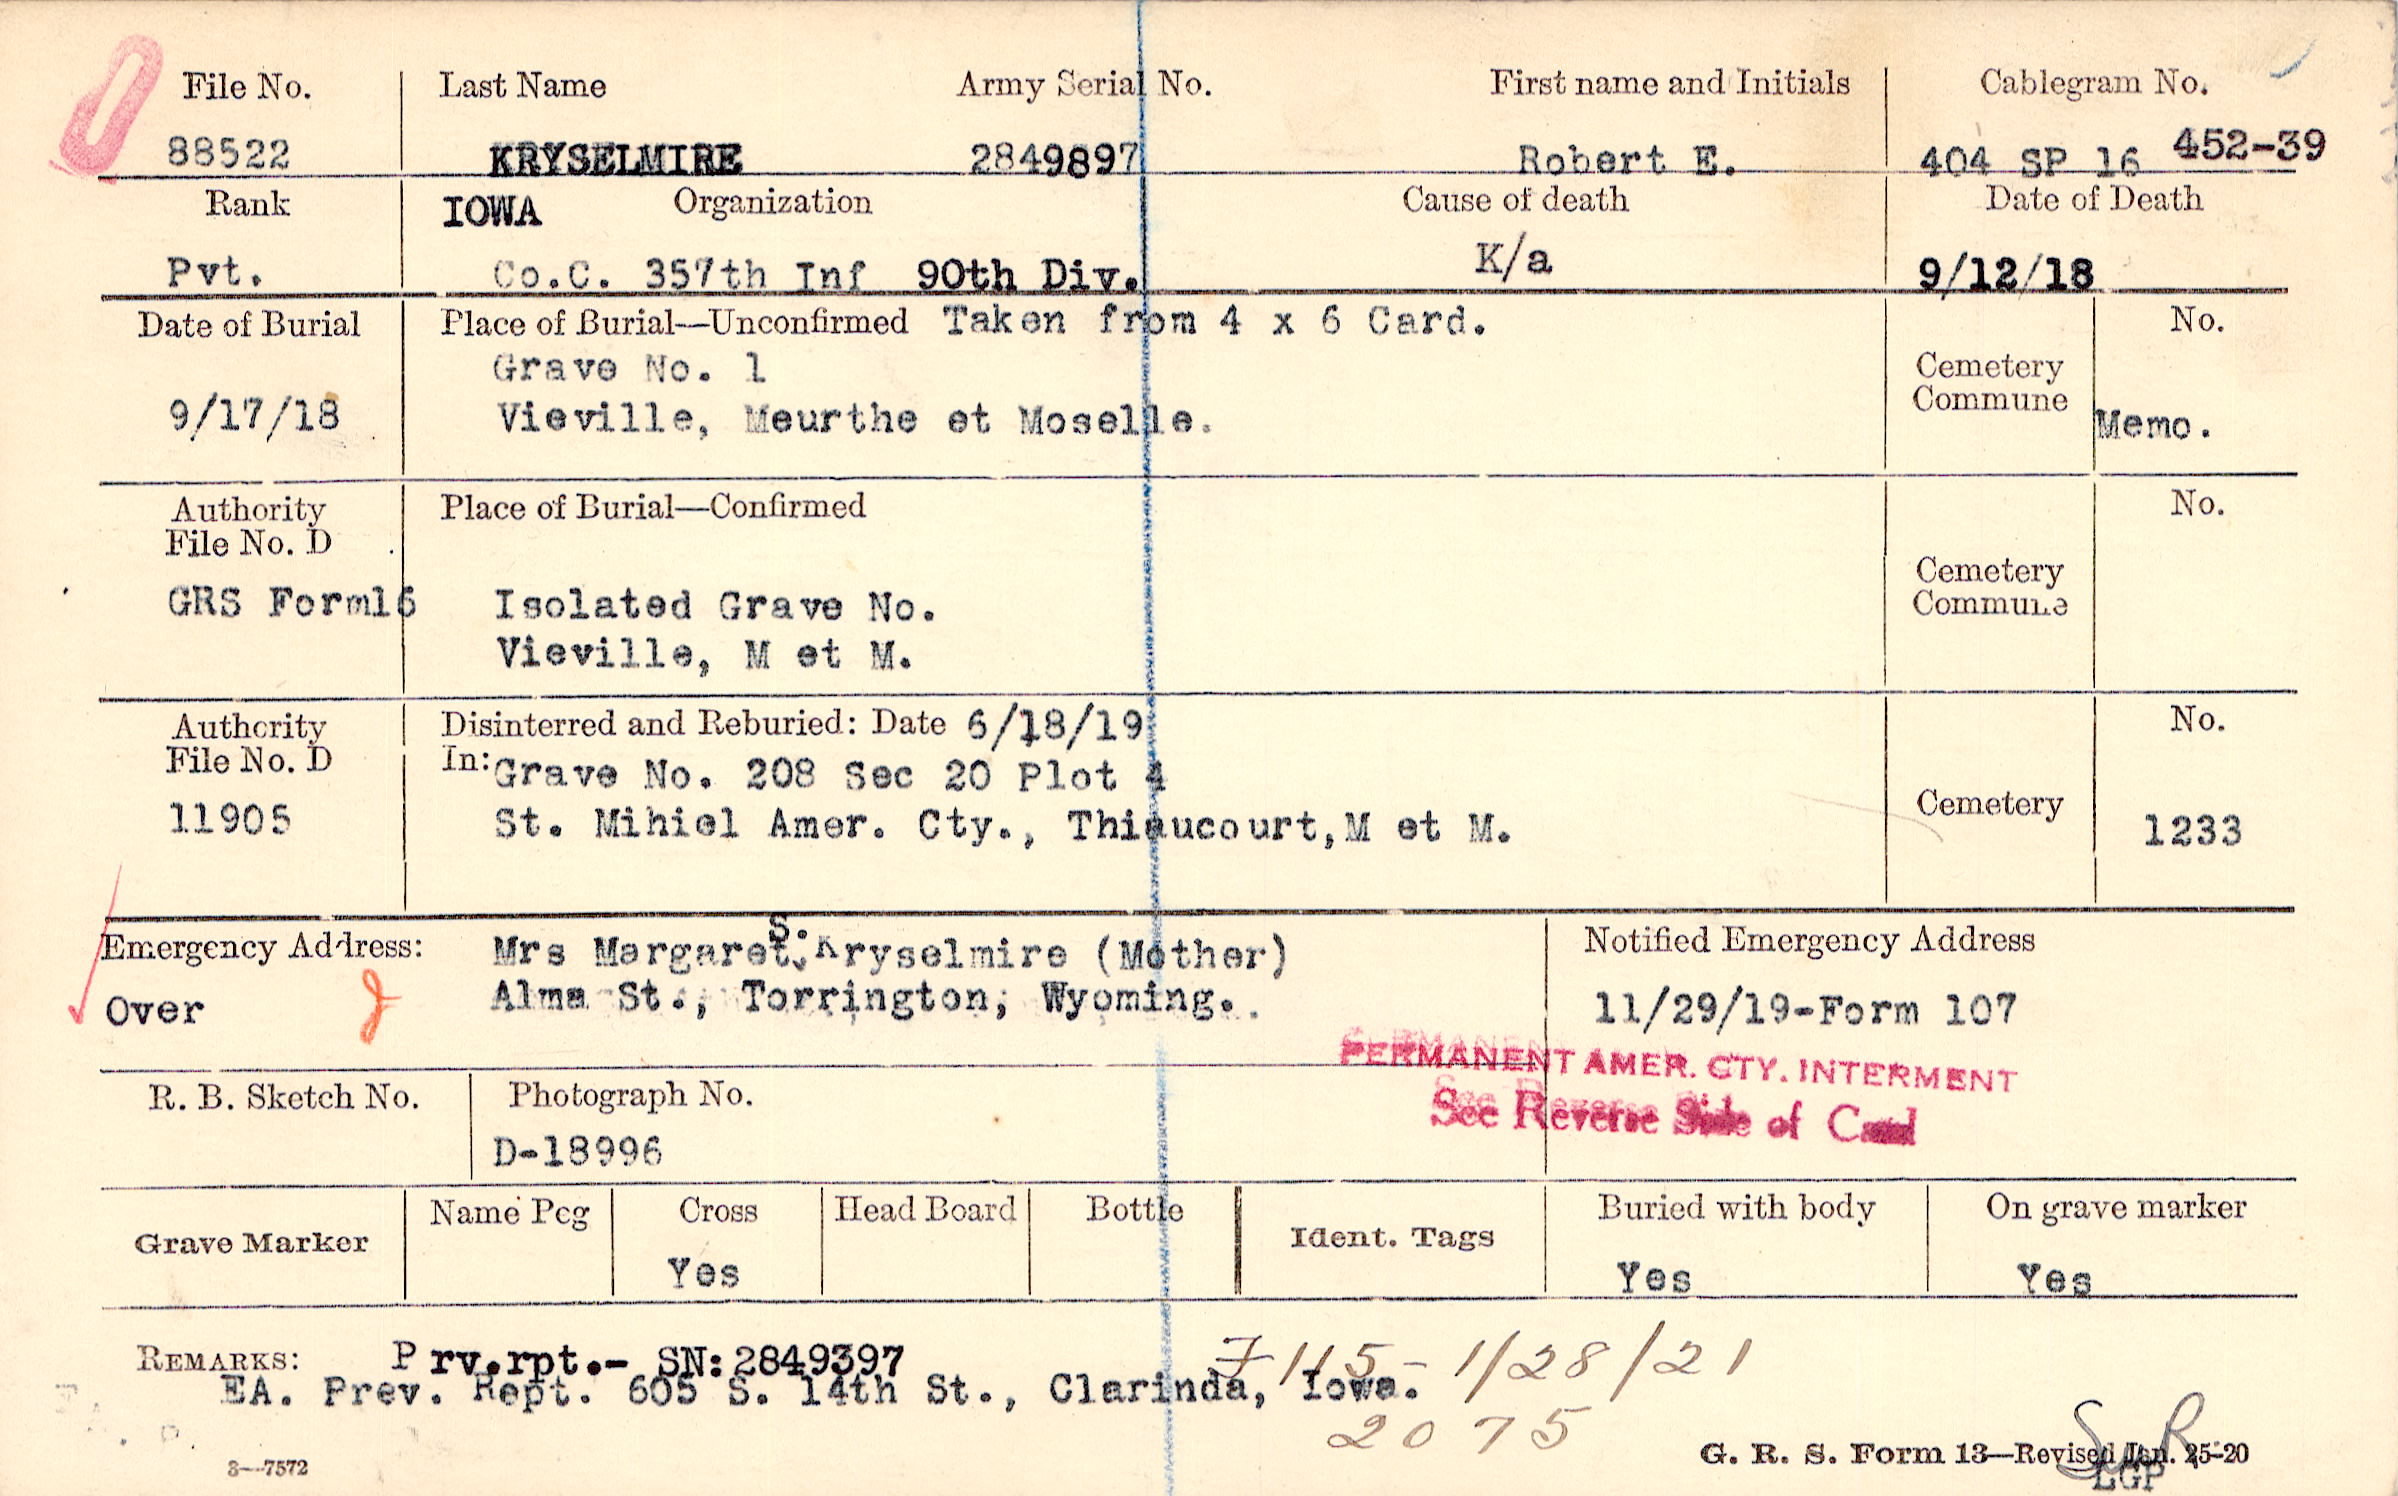 File No. Last Name Army Serial No. First name and Initials Cablegram No.
88522 KRYSELMIRE 2849897 Robert E. 404 SP 16 452-39
Rank IOWA Organization Cause of death Date of Death
Pvt. Co.C. 357th Inf 90th Div. K/a 9/12/18
Date of Burial Place of Burial—Unconfirmed Taken from 4 x 6 Card. No.
Grave No. 1 Cemetery
9/17/18 Vieville, Meurthe et Moselle. Commune Memo.
Authority Place of Burial—Confirmed No.
File No. D
GRS Form16 Isolated Grave No. Cemetery
Vieville, M et M. Commune
Authority Disinterred and Reburied: Date 6/18/19 No.
File No. D In: Grave No. 208 Sec 20 Plot 4
11905 St. Mihiel Amer. Cty., Thiaucourt,M et M. Cemetery 1233
Emergency Address: Mrs Margaret S. Kryselmire (Mother) Notified Emergency Address
Over Alma St., Torrington, Wyoming. 11/29/19-Form 107
PERMANENT AMER. CTY. INTERMENT
See Reverse Side of Card
R. B. Sketch No. Photograph No.
D-18996
Grave Marker Name Peg Cross Head Board Bottle Ident. Tags Buried with body On grave marker
Yes Yes Yes
REMARKS: Prv.rpt.- SN:2849397 7115-1/28/21
EA. Prev. Rept. 605 S. 14th St., Clarinda, Iowa.
2075
3—7572 G. R. S. Form 13—Revised Jan. 25-20
LGP